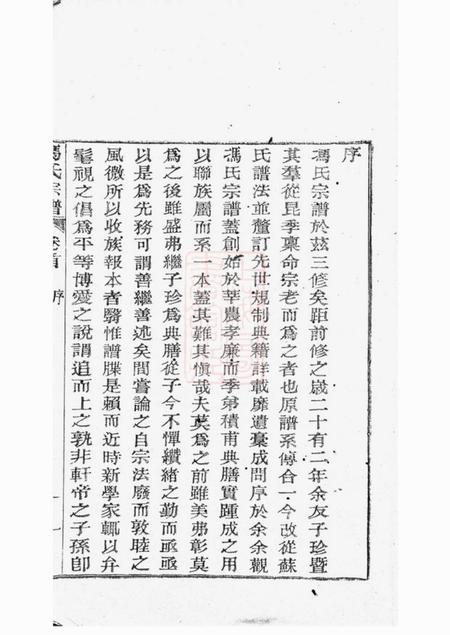 序
馮氏宗譜於茲三修矣距前修之歲二十有二年余友子珍曁
其羣從昆季稟命宗老而爲之者也原譜系傳合一今改從蘇
氏譜法並釐訂先世規制典籍詳載靡遺稾成問序於余余觀
馮氏宗譜蓋創始於莘農孝廉而季弟積甫典膳實踵成之用
以聯族屬而系一本蓋其難其愼哉夫莫爲之前雖美弗彰莫
爲之後雖盛弗繼子珍爲典膳從子今不憚纘緒之勤而亟亟
以是爲先務可謂善繼善述矣間嘗論之自宗法廢而敦睦之
風微所以收族報本者緊惟譜牒是賴而近時新學家輒以弁
髦視之倡爲平等博愛之說謂追而上之孰非軒帝之子孫卽
馮氏宗譜 卷首 序 一